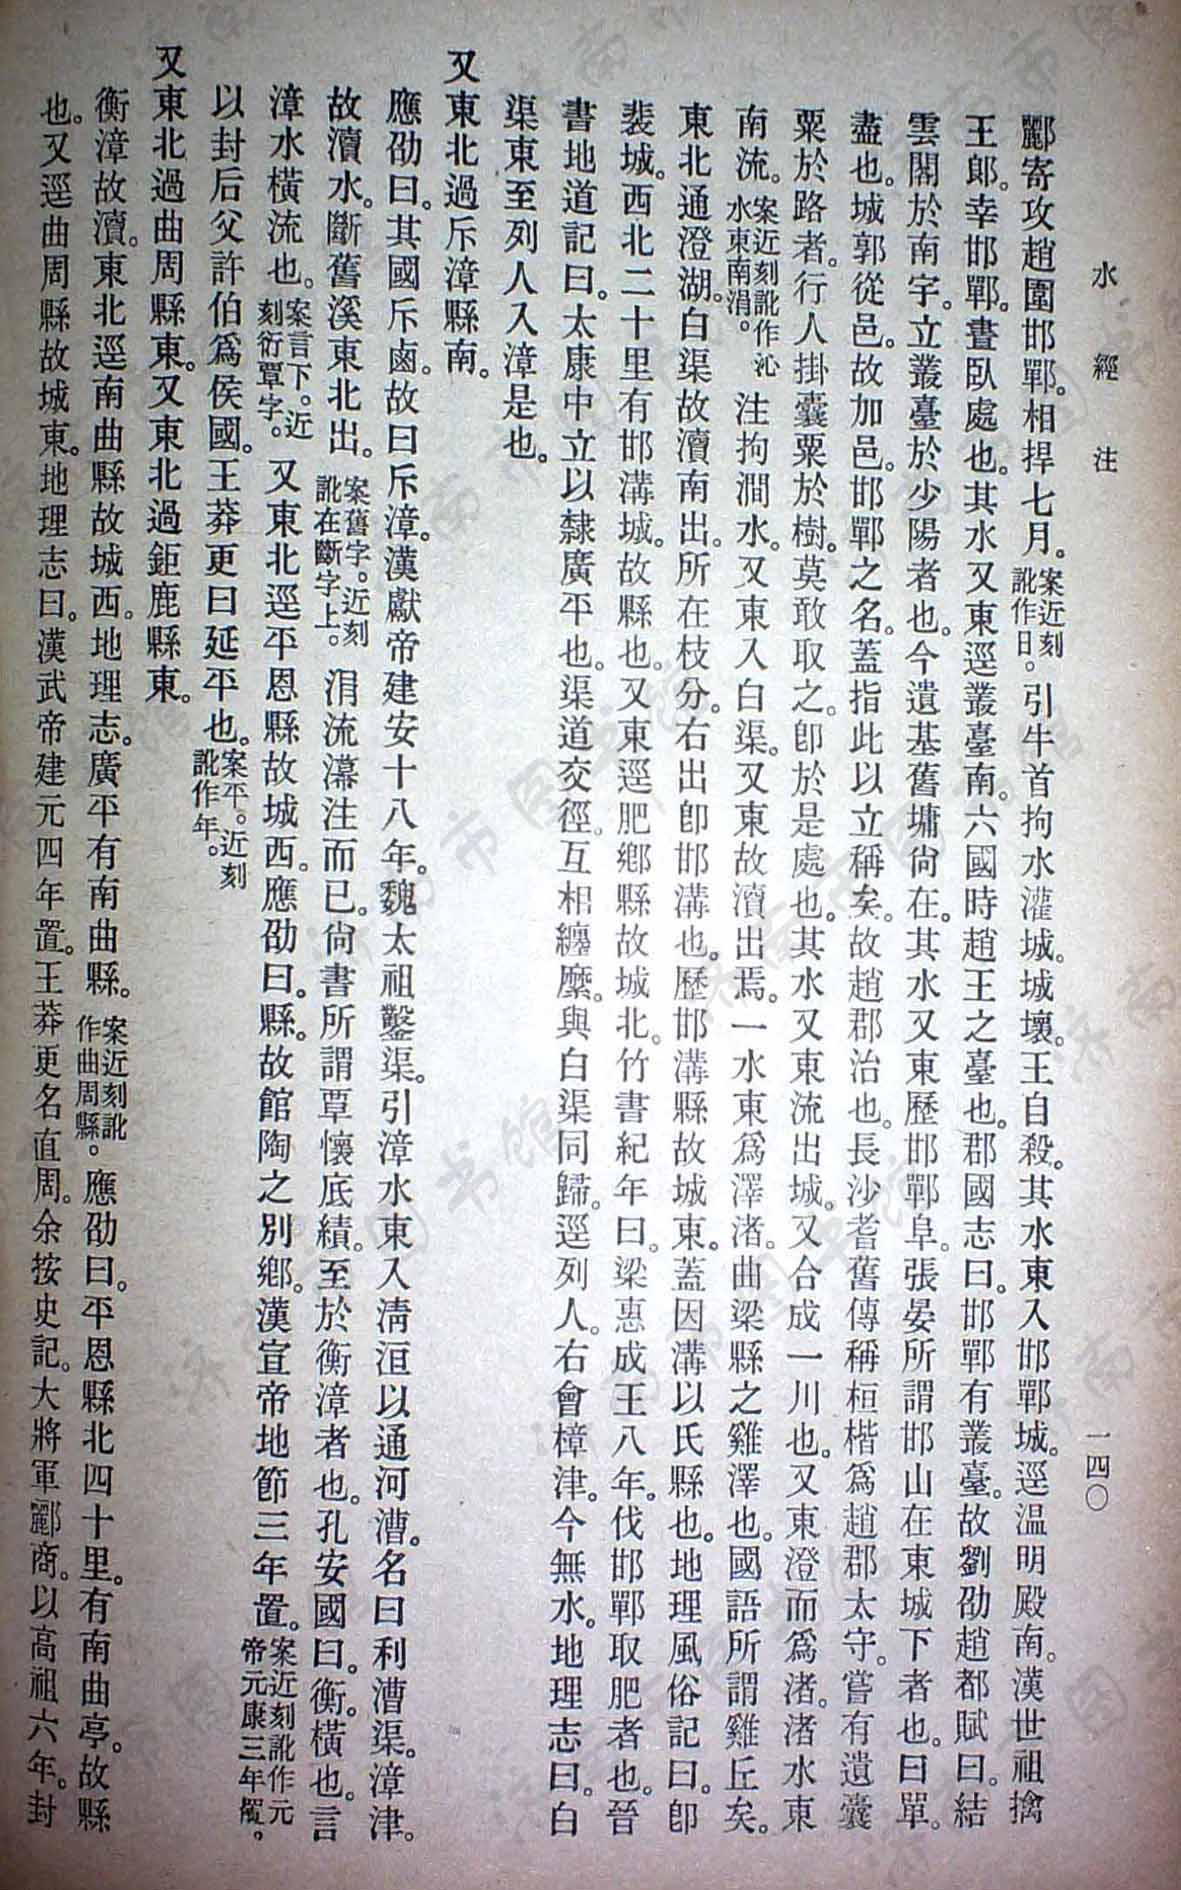 水經注
一四〇
酈寄攻趙圍邯鄲。相捍七月。案近刻訛作日。引牛首拘水灌城。城壞。王自殺。其水東入邯鄲城。逕温明殿南。漢世祖擒
王郎。幸邯鄲。晝臥處也。其水又東逕叢臺南。六國時趙王之臺也。郡國志曰。邯鄲有叢臺。故劉劭趙都賦曰。結
雲閣於南宇。立叢臺於少陽者也。今遺基舊墉尙在。其水又東歷邯鄲阜。張晏所謂邯山在東城下者也。曰單。
盡也。城郭從邑。故加邑。邯鄲之名。蓋指此以立稱矣。故趙郡治也。長沙耆舊傳稱桓楷爲趙郡太守。嘗有遺囊
粟於路者。行人掛囊粟於樹。莫敢取之。卽於是處也。其水又東流出城。又合成一川也。又東澄而爲渚。渚水東
南流。案近刻訛作沁水東南涓。注拘澗水。又東入白渠。又東故瀆出焉。一水東爲澤渚。曲梁縣之雞澤也。國語所謂雞丘矣。
東北通澄湖。白渠故瀆南出。所在枝分。右出卽邯溝也。歷邯溝縣故城東。蓋因溝以氏縣也。地理風俗記曰。卽
裴城。西北二十里有邯溝城。故縣也。又東逕肥鄉縣故城北。竹書紀年曰。梁惠成王八年。伐邯鄲取肥者也。晉
書地道記曰。太康中立以隸廣平也。渠道交徑。互相纏縻。與白渠同歸。逕列人。右會樟津。今無水。地理志曰。白
渠東至列人入漳是也。
又東北過斥漳縣南。
應劭曰。其國斥鹵。故曰斥漳。漢獻帝建安十八年。魏太祖鑿渠。引漳水東入淸洹以通河漕。名曰利漕渠。漳津
故瀆水。斷舊溪東北出。案舊字。近刻訛在斷字上。涓流濗注而已。尙書所謂覃懷底績。至於衡漳者也。孔安國曰。衡。橫也。言
漳水橫流也。案言下。近刻衍覃字。又東北逕平恩縣故城西。應劭曰。縣。故館陶之別鄉。漢宣帝地節三年置。案近刻訛作元帝元康三年櫂。
以封后父許伯爲侯國。王莽更曰延平也。案平。近刻訛作年。
又東北過曲周縣東。又東北過鉅鹿縣東。
衡漳故瀆。東北逕南曲縣故城西。地理志。廣平有南曲縣。案近刻訛作曲周縣。應劭曰。平恩縣北四十里。有南曲亭。故縣
也。又逕曲周縣故城東。地理志曰。漢武帝建元四年置。王莽更名直周。余按史記。大將軍酈商。以高祖六年。封